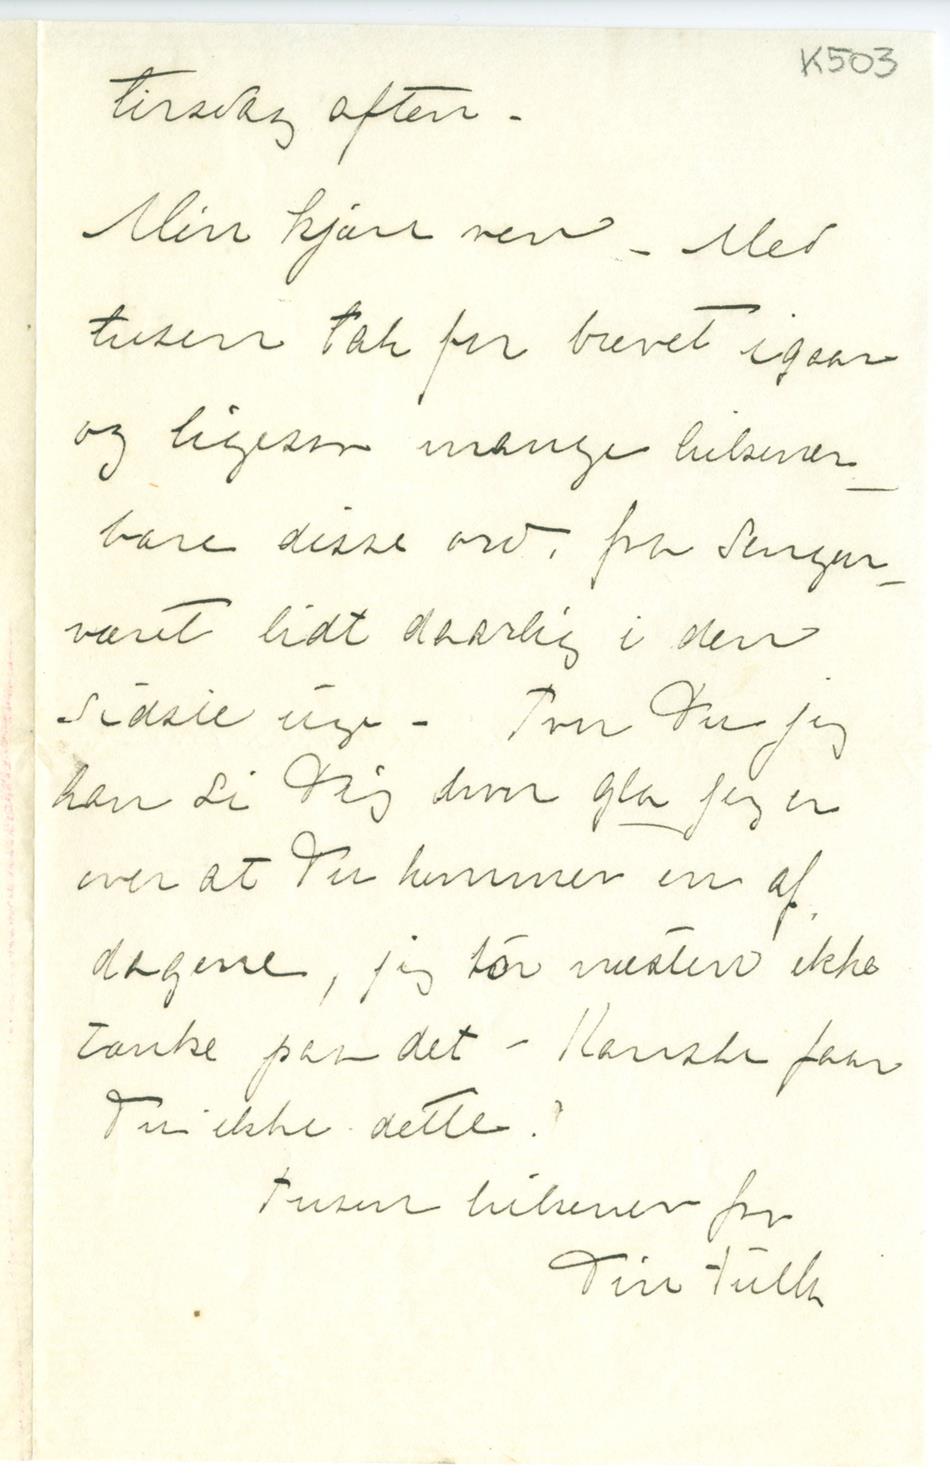 K503
tirsdag aften –
Min kjære ven – Med
tusen tak for brevet igaar
og ligesaa mange hilsener –
bare disse ord, fra Sengen –
været lidt daarlig i den
sidste uge – Tror Du jeg
kan si Dig hvor gla jeg er
over at Du kommer en af
dagene, jeg tör næsten ikke
tænke paa det – Kanske faar
Du ikke dette?
Tusen hilsener fra
Din Tulla